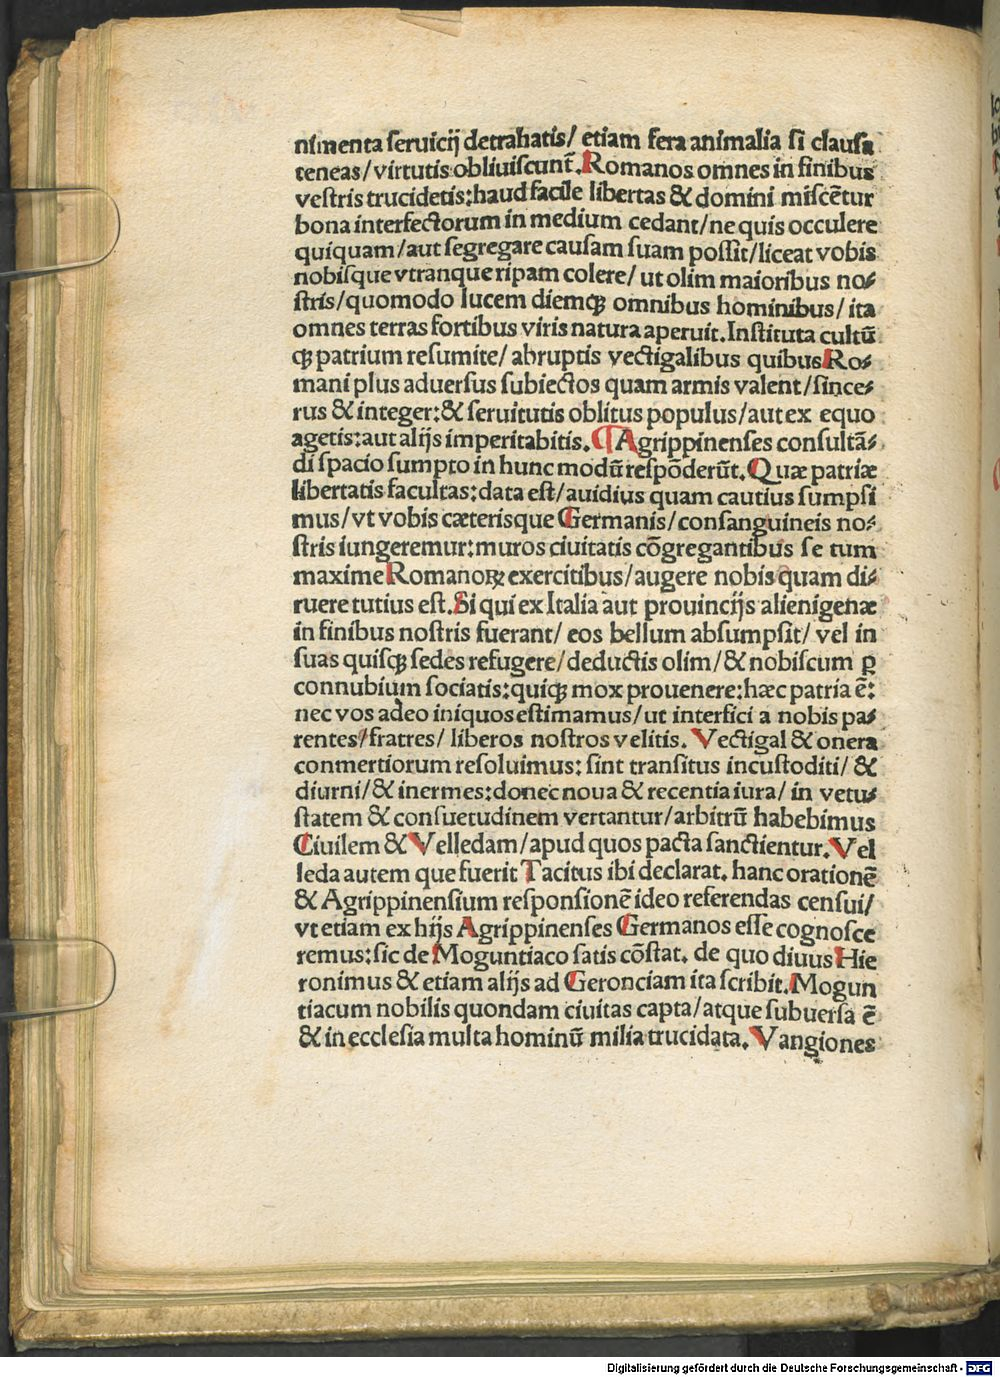 nimenta seruicij detrahatis/ etiam fera animalia si clausa
teneas/virtutis obliuiscunt̃. Romanos omnes in finibus
vestris trucidetis: haud facile libertas & domini miscētur
bona interfectorum in medium cedant/ne quis occulere
quiquam/aut segregare causam suam possit/liceat vobis
nobisque vtranque ripam colere/ ut olim maioribus no⸗
stris/quomodo lucem diemqꝫ omnibus hominibus/ ita
omnes terras fortibus viris natura aperuit. Instituta cultū
qꝫ patrium resumite/ abruptis vectigalibus quibus Ro⸗
mani plus aduersus subiectos quam armis valent/since⸗
rus & integer:& seruitutis oblitus populus/aut ex equo
agetis:aut alijs imperitabitis. ¶Agrippinenses consultā⸗
di spacio sumpto in hunc modū respōderūt. Quæ patriæ
libertatis facultas:data est/auidius quam cautius sumpsi
mus/vt vobis cæterisque Germanis/consanguineis no⸗
stris iungeremur:muros ciuitatis cōgregantibus se tum
maxime Romanoꝝ exercitibus/augere nobis quam di⸗
ruere tutius est. Si qui ex Italia aut prouincijs alienigenæ
in finibus nostris fuerant/ eos bellum absumpsit/ vel in
suas quisqꝫ sedes refugere/deductis olim/& nobiscum ꝑ
connubium sociatis:quiqꝫ mox prouenere:hæc patria ē:
nec vos adeo iniquos estimamus/ut interfici a nobis pa⸗
rentes/fratres/ liberos nostros velitis. Vectigal & onera
conmertiorum resoluimus: sint transitus incustoditi/ &
diurni/& inermes:donec noua & recentia iura/ in vetu⸗
statem & consuetudinem vertantur/arbitrū habebimus
Ciuilem & Velledam/apud quos pacta sanctientur. Vel
leda autem que fuerit Tacitus ibi declarat. hanc orationē
& Agrippinensium responsionē ideo referendas censui/
vt etiam ex hijs Agrippinenses Germanos esse cognosce
remus:sic de Moguntiaco satis cōstat. de quo diuus Hie
ronimus & etiam alijs ad Geronciam ita scribit. Mogun
tiacum nobilis quondam ciuitas capta/atque subuersa ē
& in ecclesia multa hominū milia trucidata. Vangiones
Digitalisierung gefördert durch die Deutsche Forschungsgemeinschaft - DFG